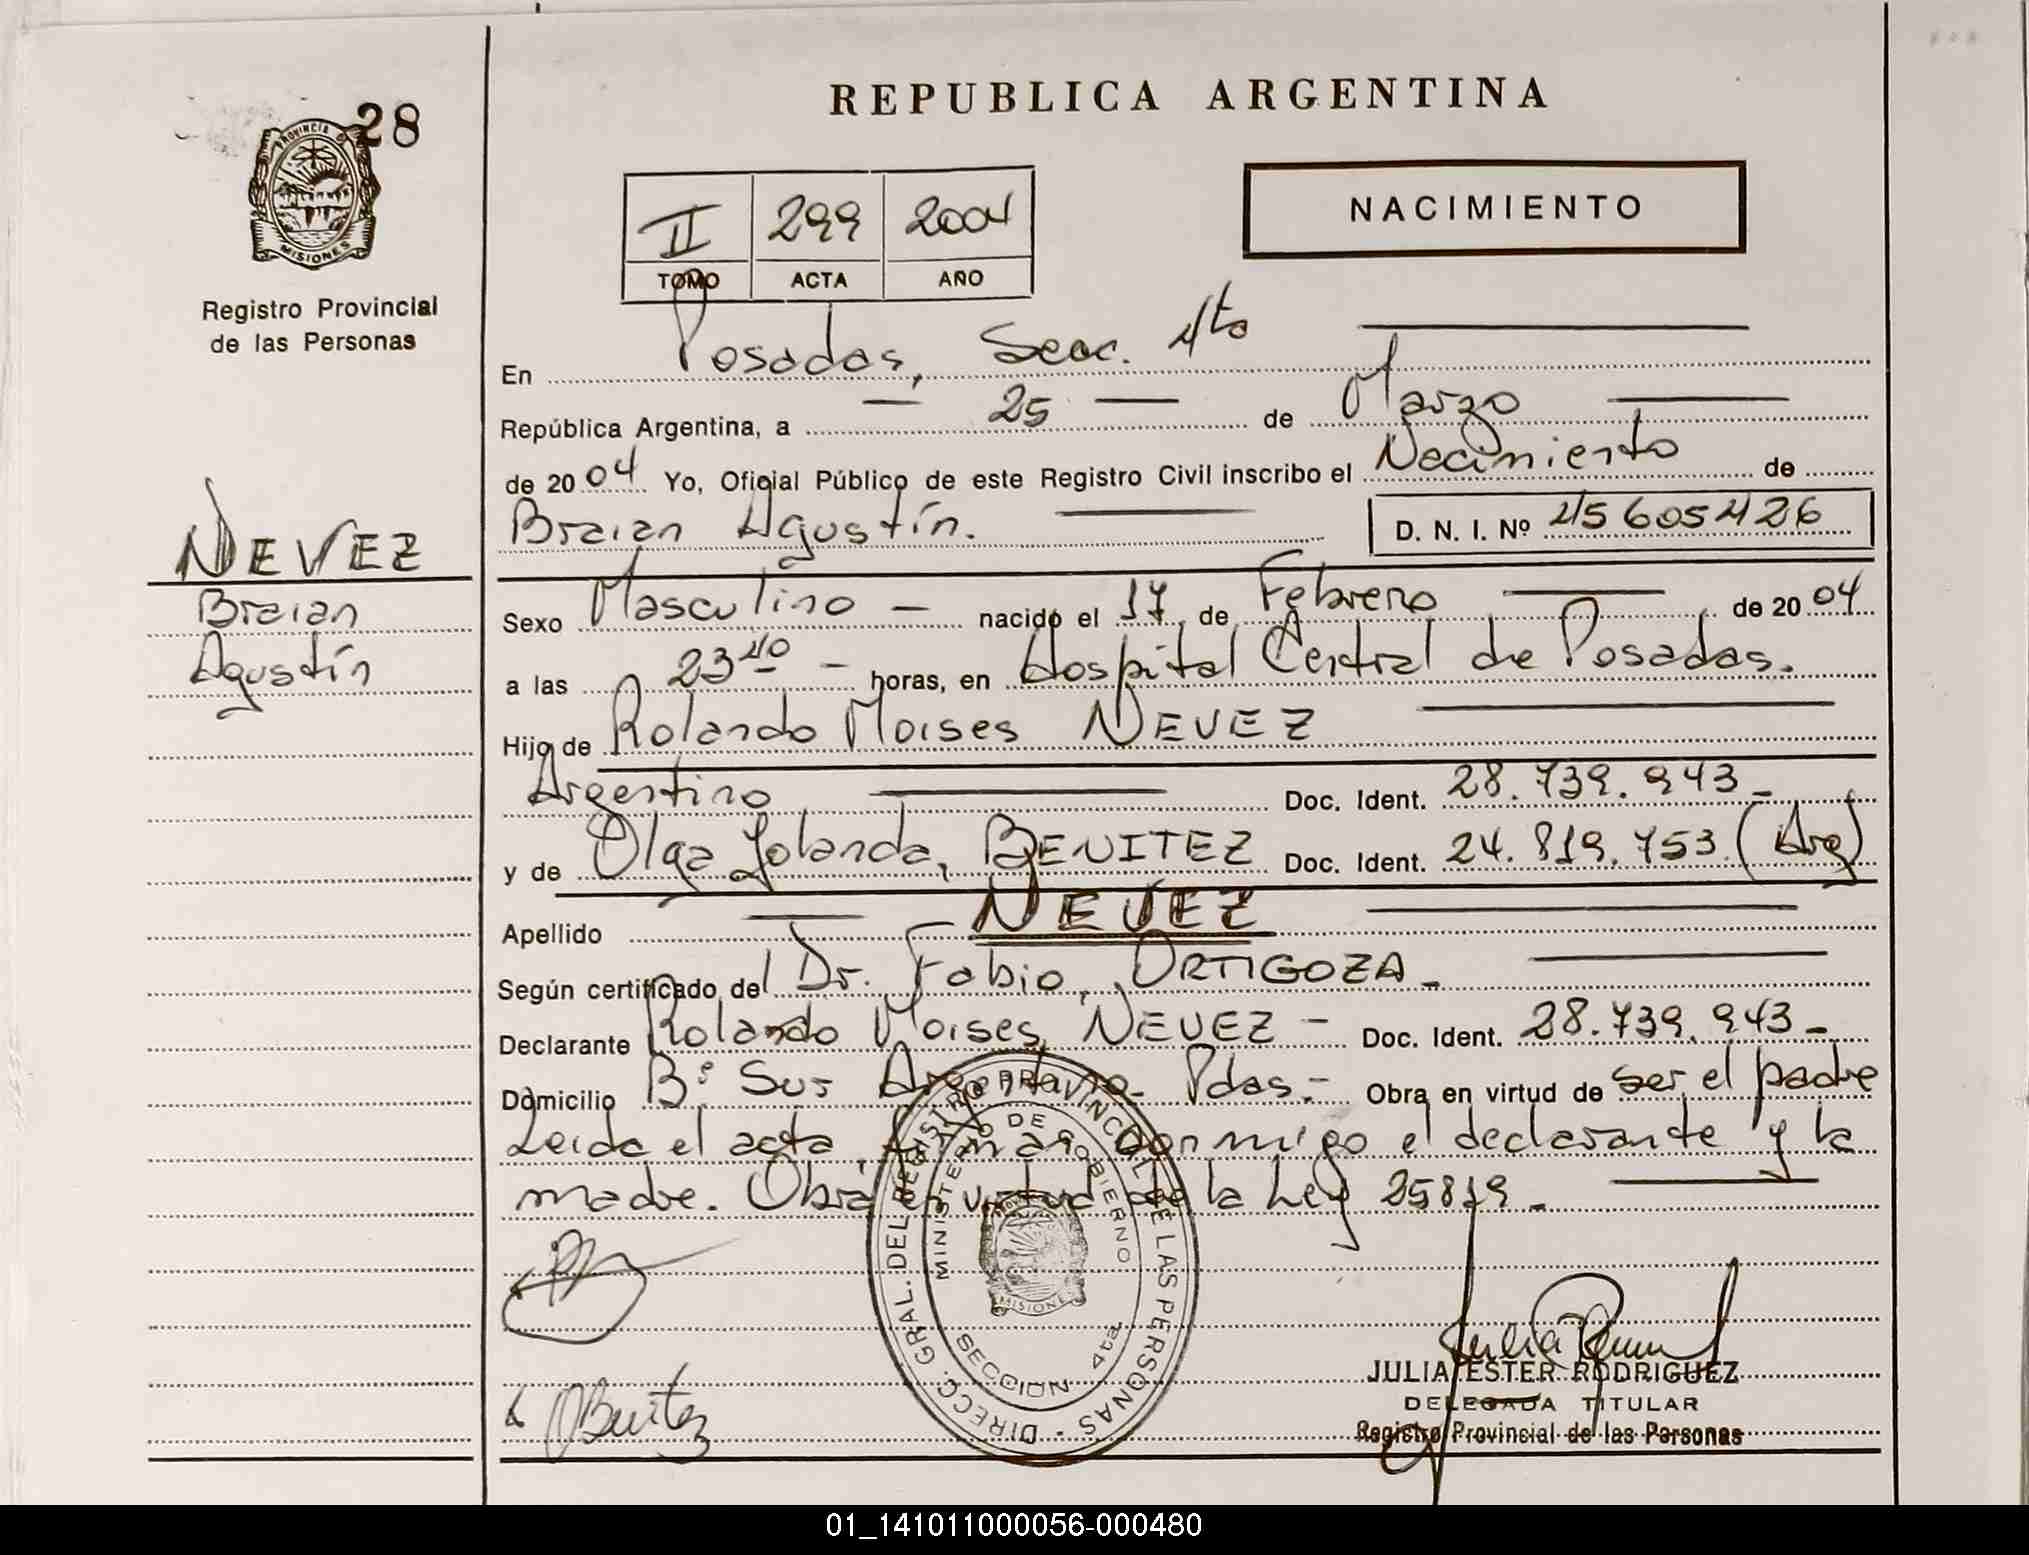 REPUBLICA ARGENTINA
28
PROVINCIA DE
MISIONES
Registro Provincial
de las Personas
II 299 2004
TOMO ACTA AÑO
NACIMIENTO
En Posadas, Secc. 4ta
República Argentina, a — 25 — de Marzo
de 2004 Yo, Oficial Público de este Registro Civil inscribo el Nacimiento de
Braian Agustín. D. N. I. Nº 45605426
NEVEZ
Braian
Agustín
Sexo Masculino — nacido el 17 de Febrero de 2004
a las 23 40 — horas, en Hospital Central de Posadas.
Hijo de Rolando Moises NEVEZ
Argentino Doc. Ident. 28.739.943-
y de Olga Yolanda, BENITEZ Doc. Ident. 24.819.753 (Arg)
Apellido NEVEZ
Según certificado del Dr. Fabio, ORTIGOZA-
Declarante Rolando Moises, NEVEZ - Doc. Ident. 28.739.943-
Domicilio Bº Sur Argentino- Pdas.- Obra en virtud de ser el padre
Leida el acta, firman conmigo el declarante y la
madre. Obra en virtud de la Ley 25819-
DIRECC. GRAL. DEL REGISTRO PROVINCIAL DE LAS PERSONAS -
MINISTERIO DE GOBIERNO
MISIONES
SECCION 4ta
OBenitez
JULIA ESTER RODRIGUEZ
DELEGADA TITULAR
Registro Provincial de las Personas
01_141011000056-000480